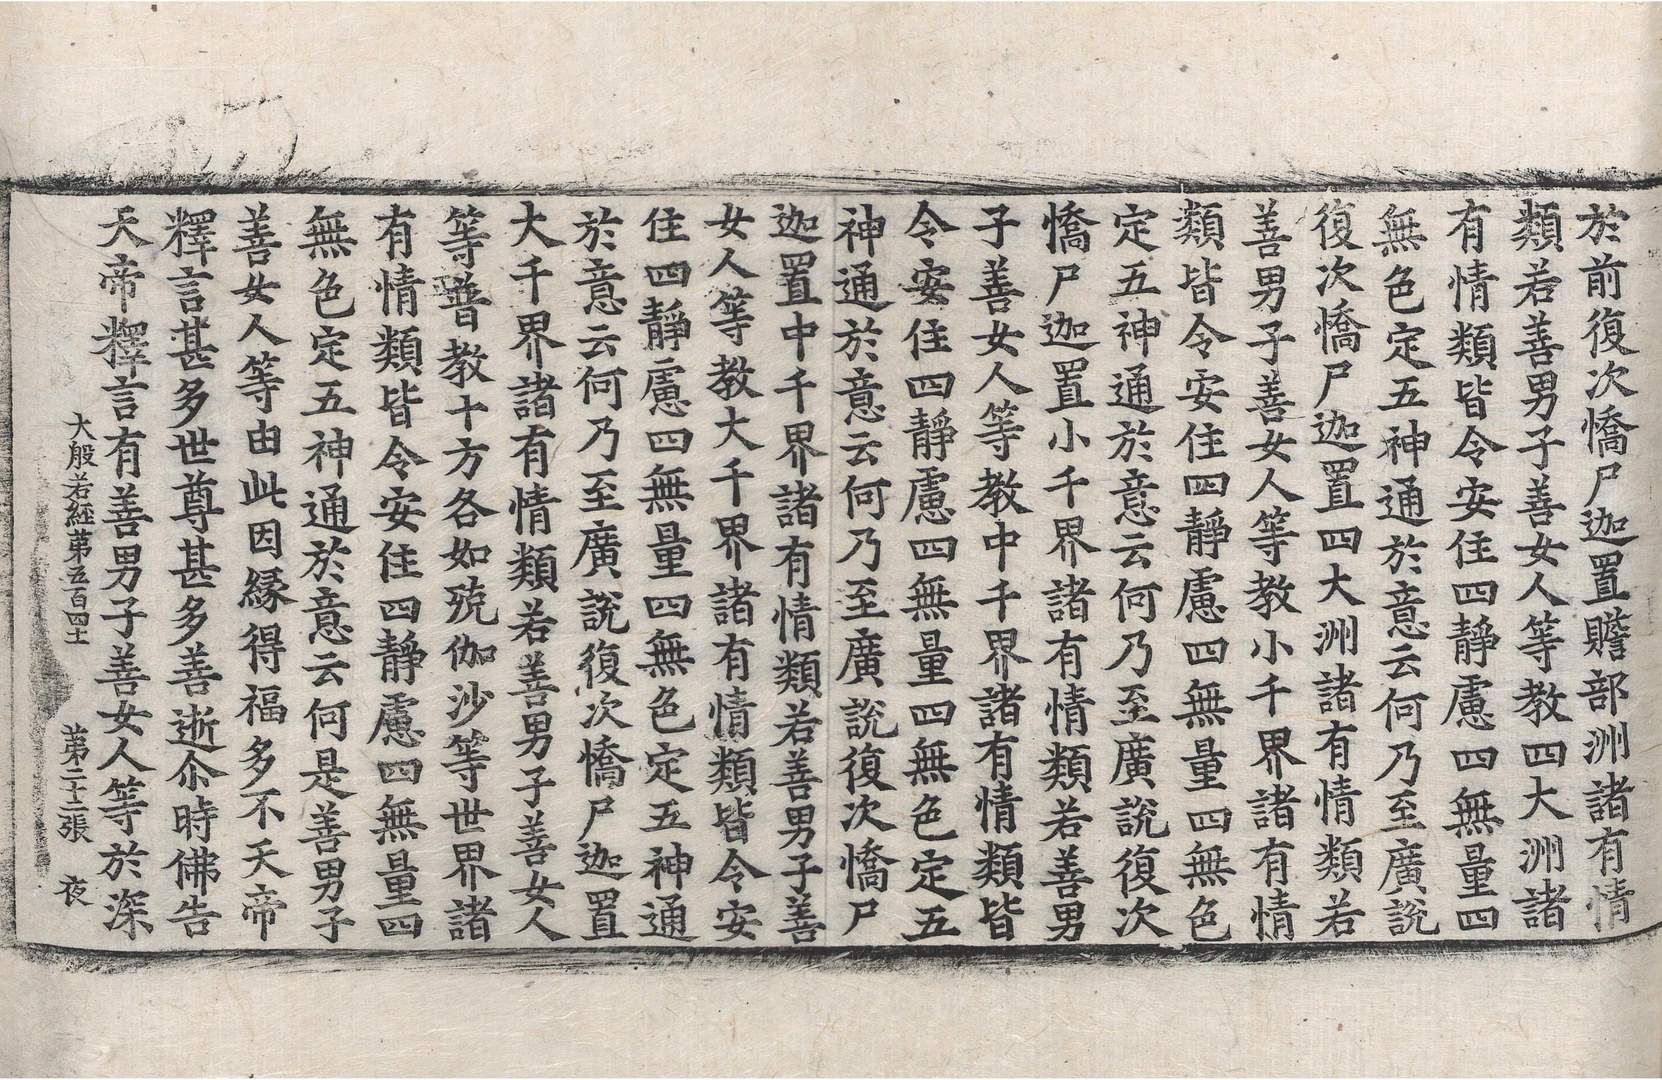 於前復次憍尸迦置贍部洲諸有情
類若善男子善女人等教四大洲諸
有情類皆令安住四靜慮四無量四
無色定五神通於意云何乃至廣說
復次憍尸迦置四大洲諸有情類若
善男子善女人等教小千界諸有情
類皆令安住四靜慮四無量四無色
定五神通於意云何乃至廣說復次
憍尸迦置小千界諸有情類若善男
子善女人等教中千界諸有情類皆
令安住四靜慮四無量四無色定五
神通於意云何乃至廣說復次憍尸
迦置中千界諸有情類若善男子善
女人等教大千界諸有情類皆令安
住四靜慮四無量四無色定五神通
於意云何乃至廣說復次憍尸迦置
大千界諸有情類若善男子善女人
等普教十方各如殑伽沙等世界諸
有情類皆令安住四靜慮四無量四
無色定五神通於意云何是善男子
善女人等由此因緣得福多不天帝
釋言甚多世尊甚多善逝尒時佛告
天帝釋言有善男子善女人等於深
大般若經第五百四十一 第二十二張 夜